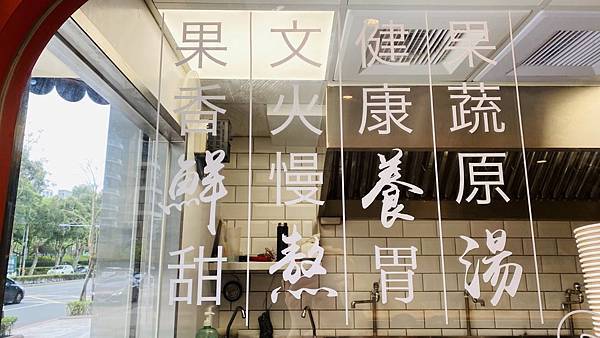 果蔬原湯
健康養胃
文火慢熬
果香鮮甜